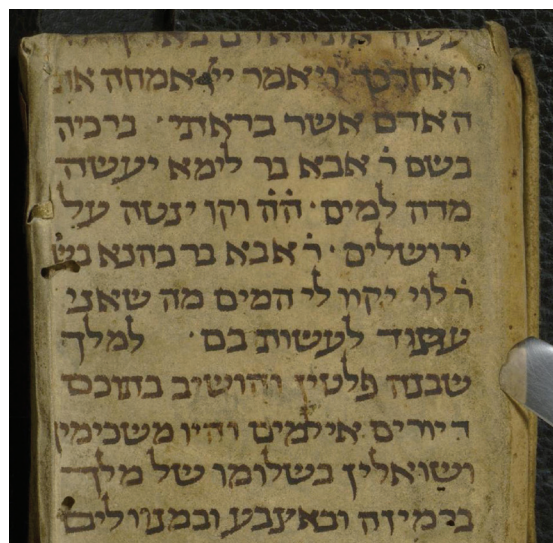 ואחרכך ויאמר ייי אמחה את
האדם אשר בראתי · ברכיה
בשם ר׳ אבא בר לימא יעשה
מדה למים · הה וקו ינטה על
ירושלים · ר׳ אבא בר כהנא בש׳
ר׳ לוי יקוו לי המים מה שאני
עתיד לעשות בם · למלך
שבנה פלטין והושיב בתוכם
דיורים אילמים והיו משכימין
ושואלין בשלומו של מלך
ברמיזה ובאצבע ובמנוולים